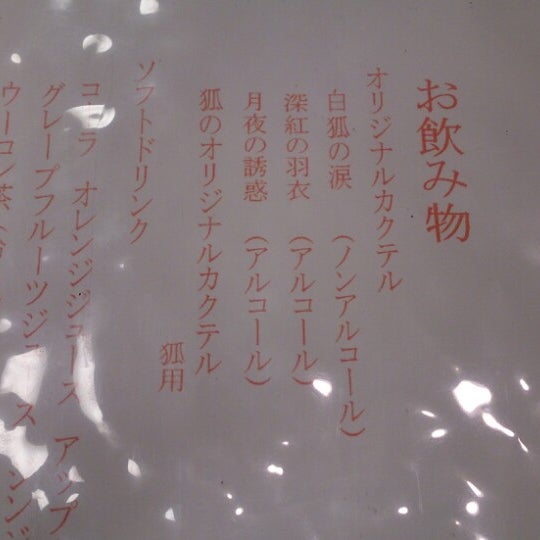 お飲み物
オリジナルカクテル
白狐の涙 (ノンアルコール)
深紅の羽衣 (アルコール)
月夜の誘惑 (アルコール)
狐のオリジナルカクテル
狐用
ソフトドリンク
コーラ オレンジジュース アップ
グレープフルーツジュース ジンジ
ウーロン茶